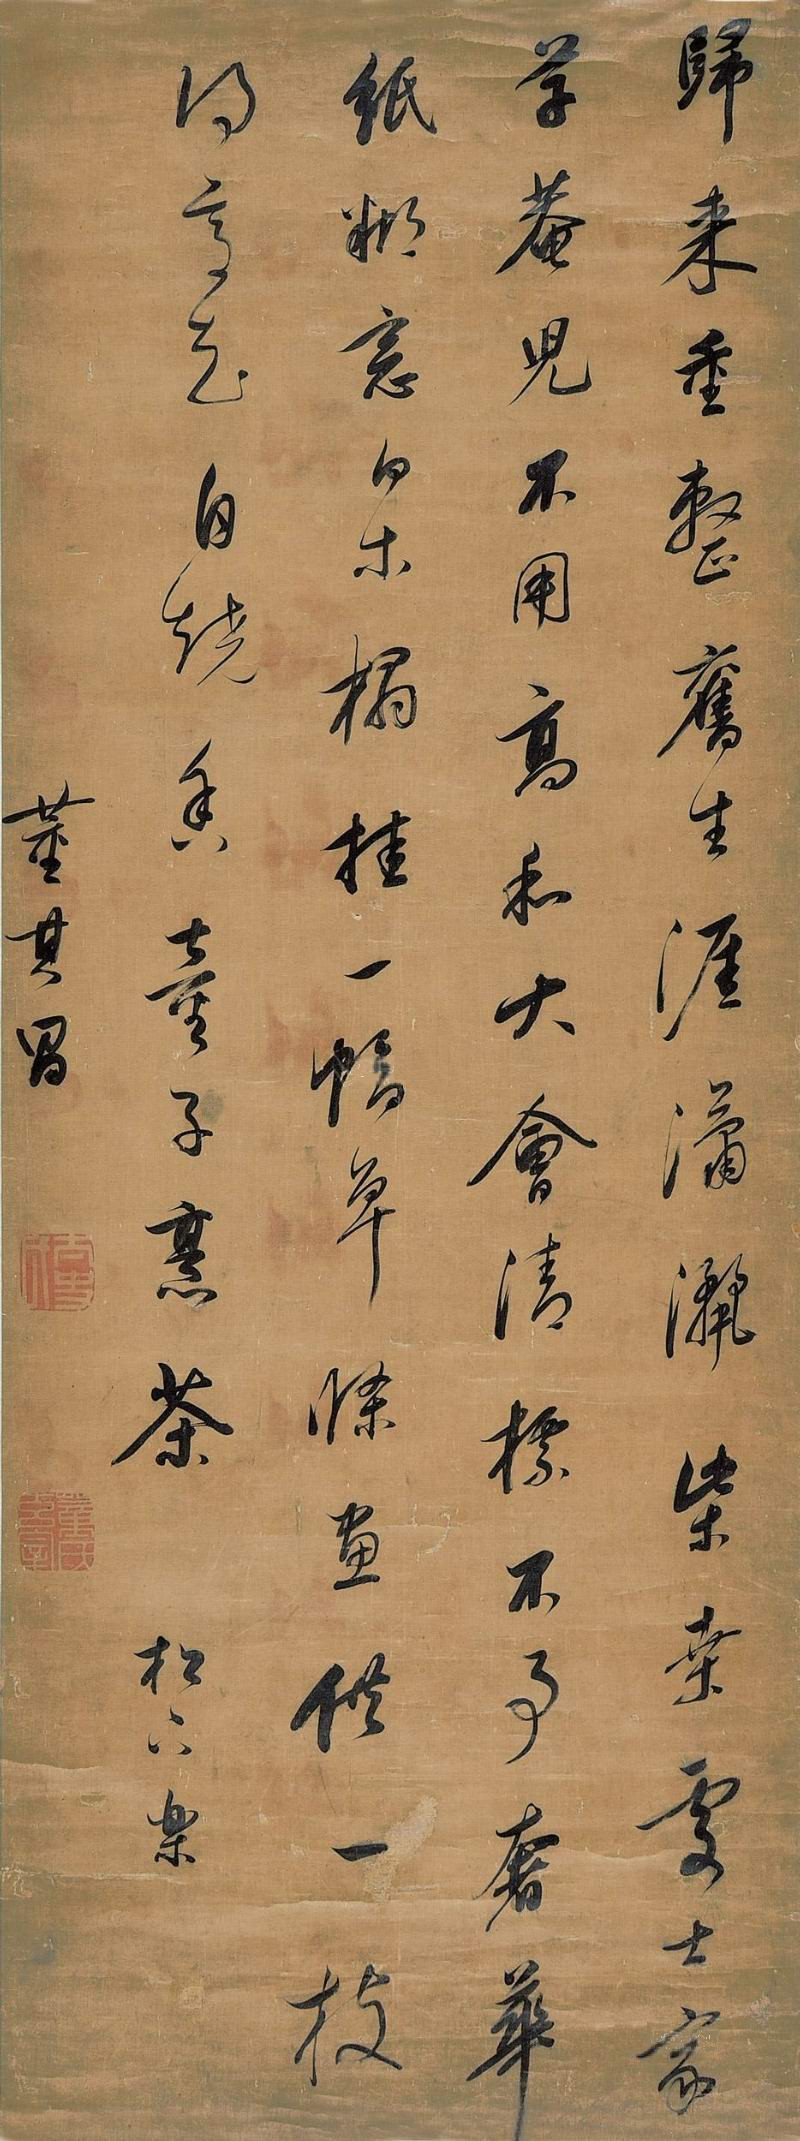 歸来重整舊生涯瀟灑柴桑處士家
草菴兒不用高和大會清標不事奢華
紙糊窓白木榻挂一幅單條畫供一枝
得意花自燒香童子烹茶 松下樂
董其昌